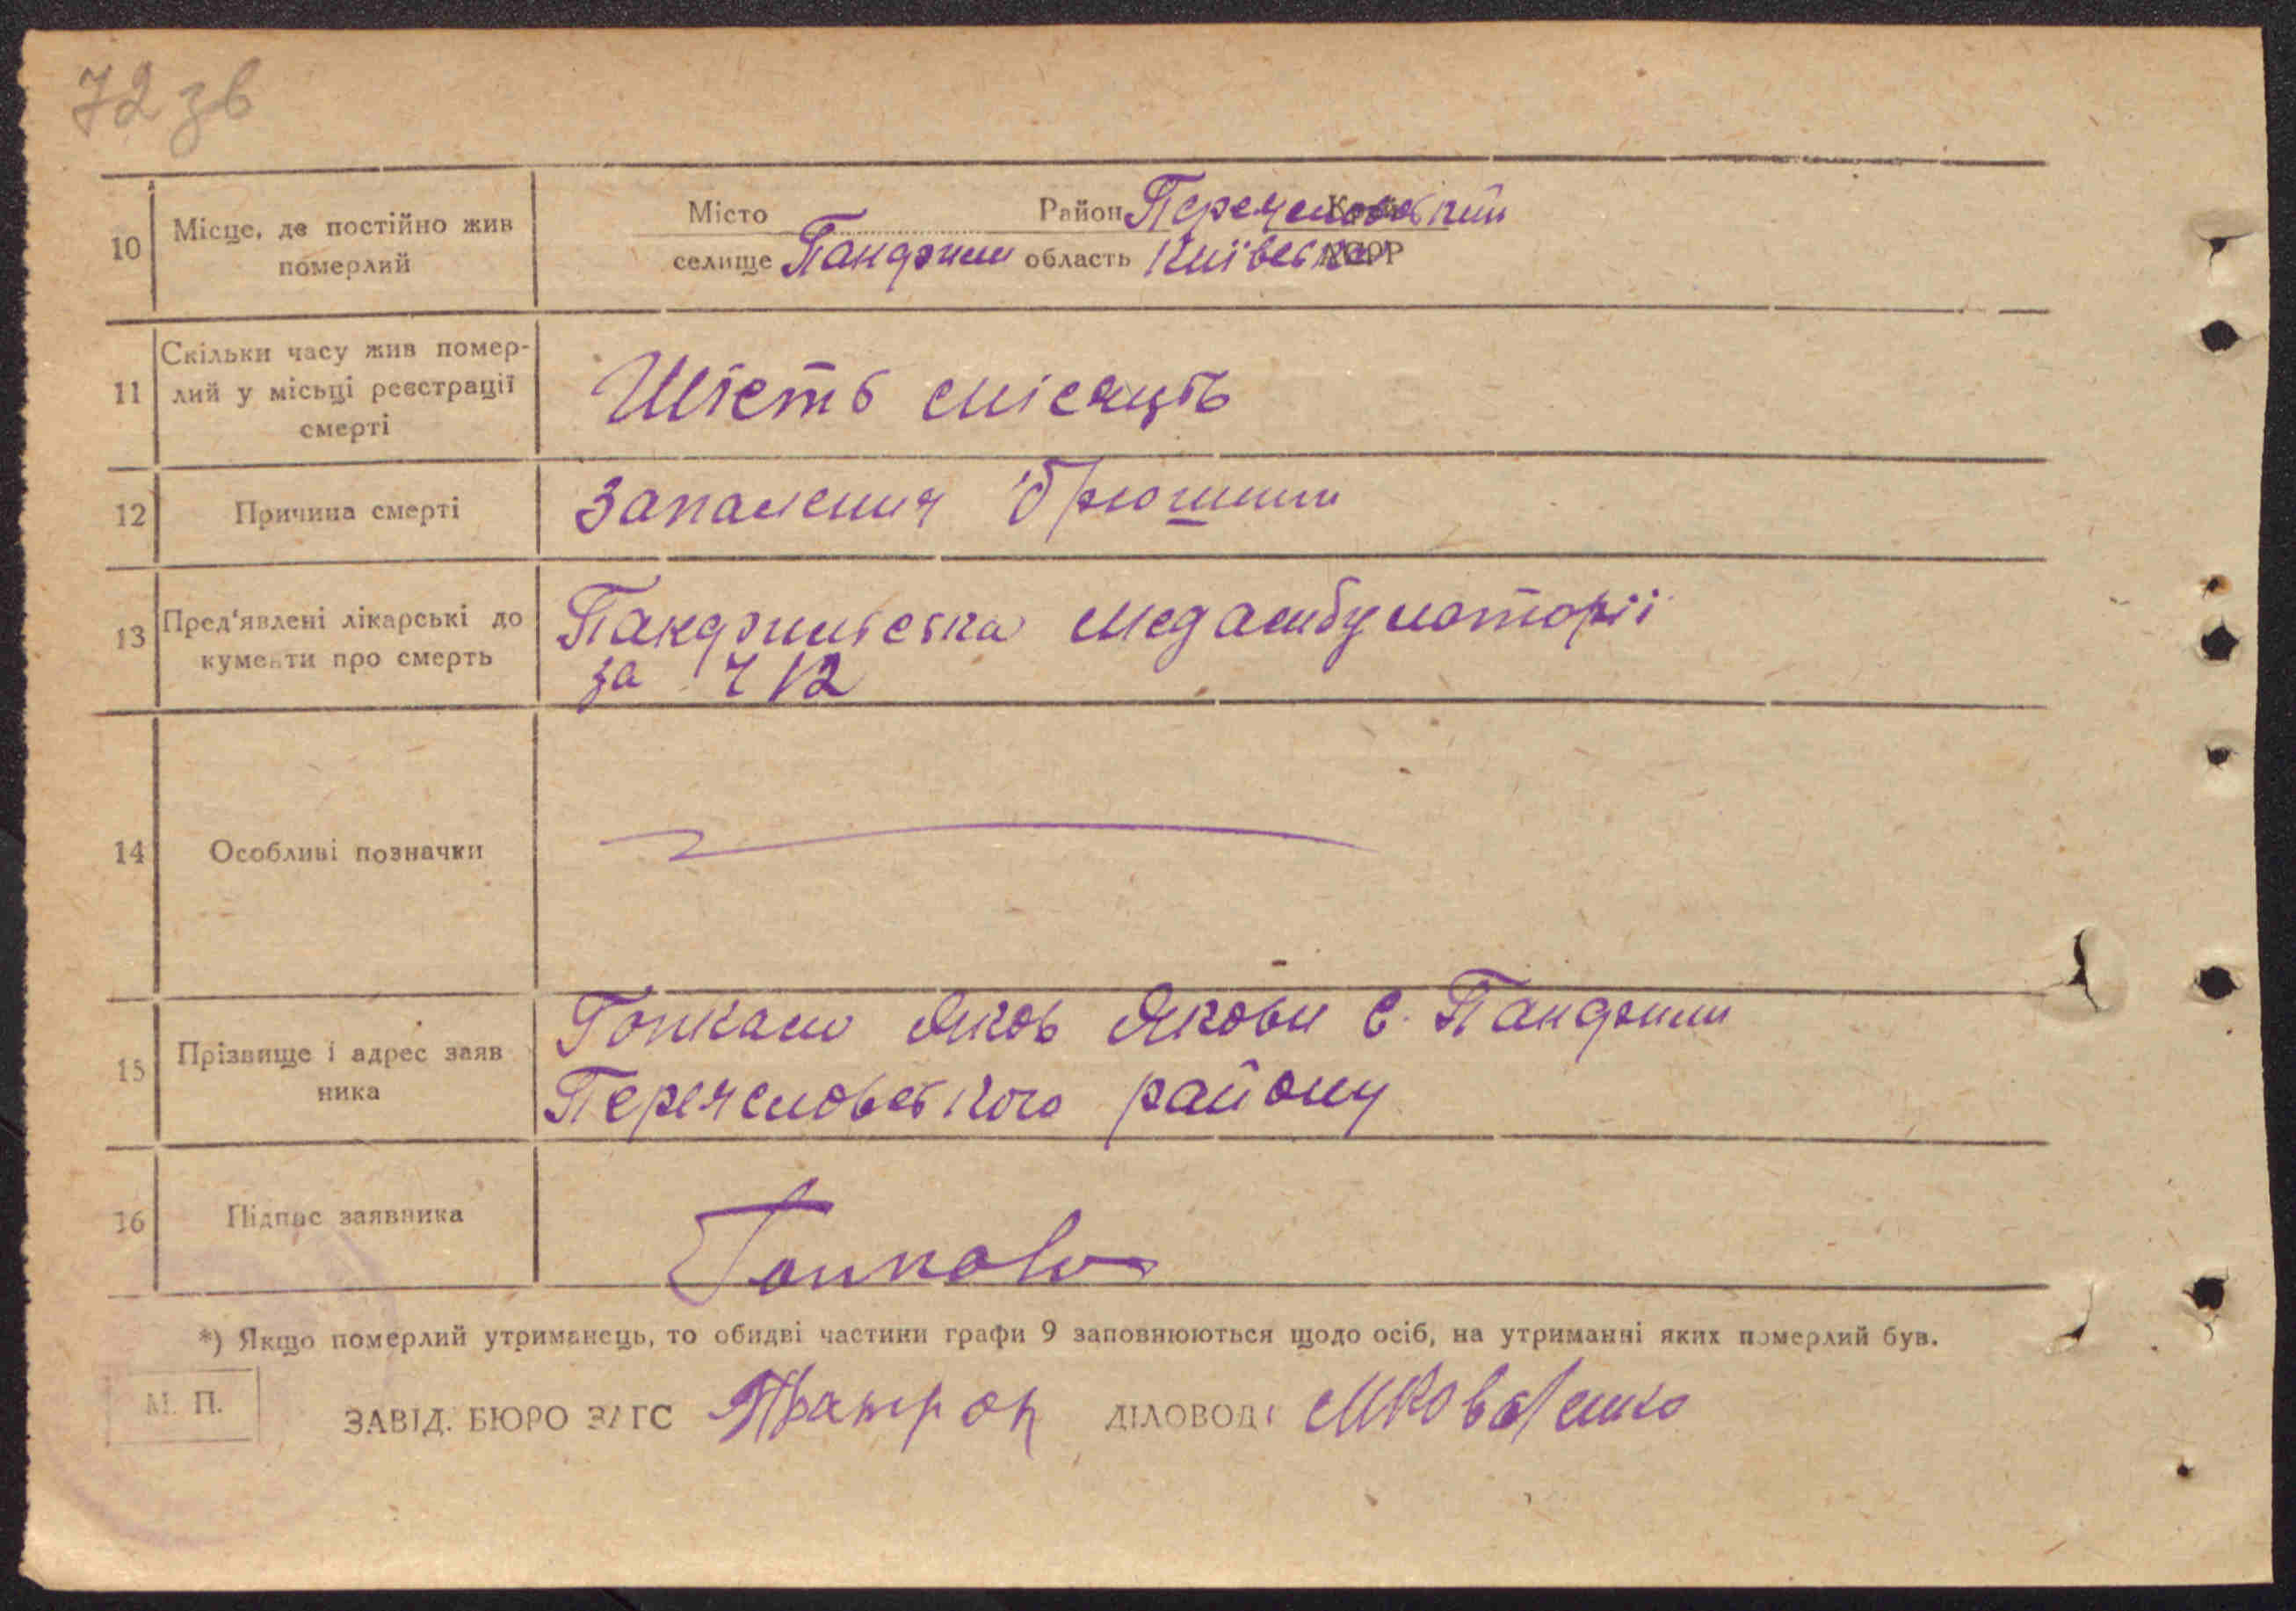 72 зв
10 Місце, де постійно жив померлий
Місто Район Переяславський Край
селище Пандрики область Київська АСРР
11 Скільки часу жив помер-
лий у місьці реєстрації
смерті
Шість місяців
12 Причина смерті
Запалення брюшини
13 Пред'явлені лікарські до
кументи про смерть
медамбулаторії
за 12
14 Особливі позначки
15 Прізвище і адрес заяв
ника
Яков с.
району
16 Підпис заявника
*) Якщо померлий утриманець, то обидві частини графи 9 заповнюються щодо осіб, на утриманні яких померлий був.
М. П.
ЗАВІД. БЮРО ЗАГС ДІЛОВОД МКоваленко